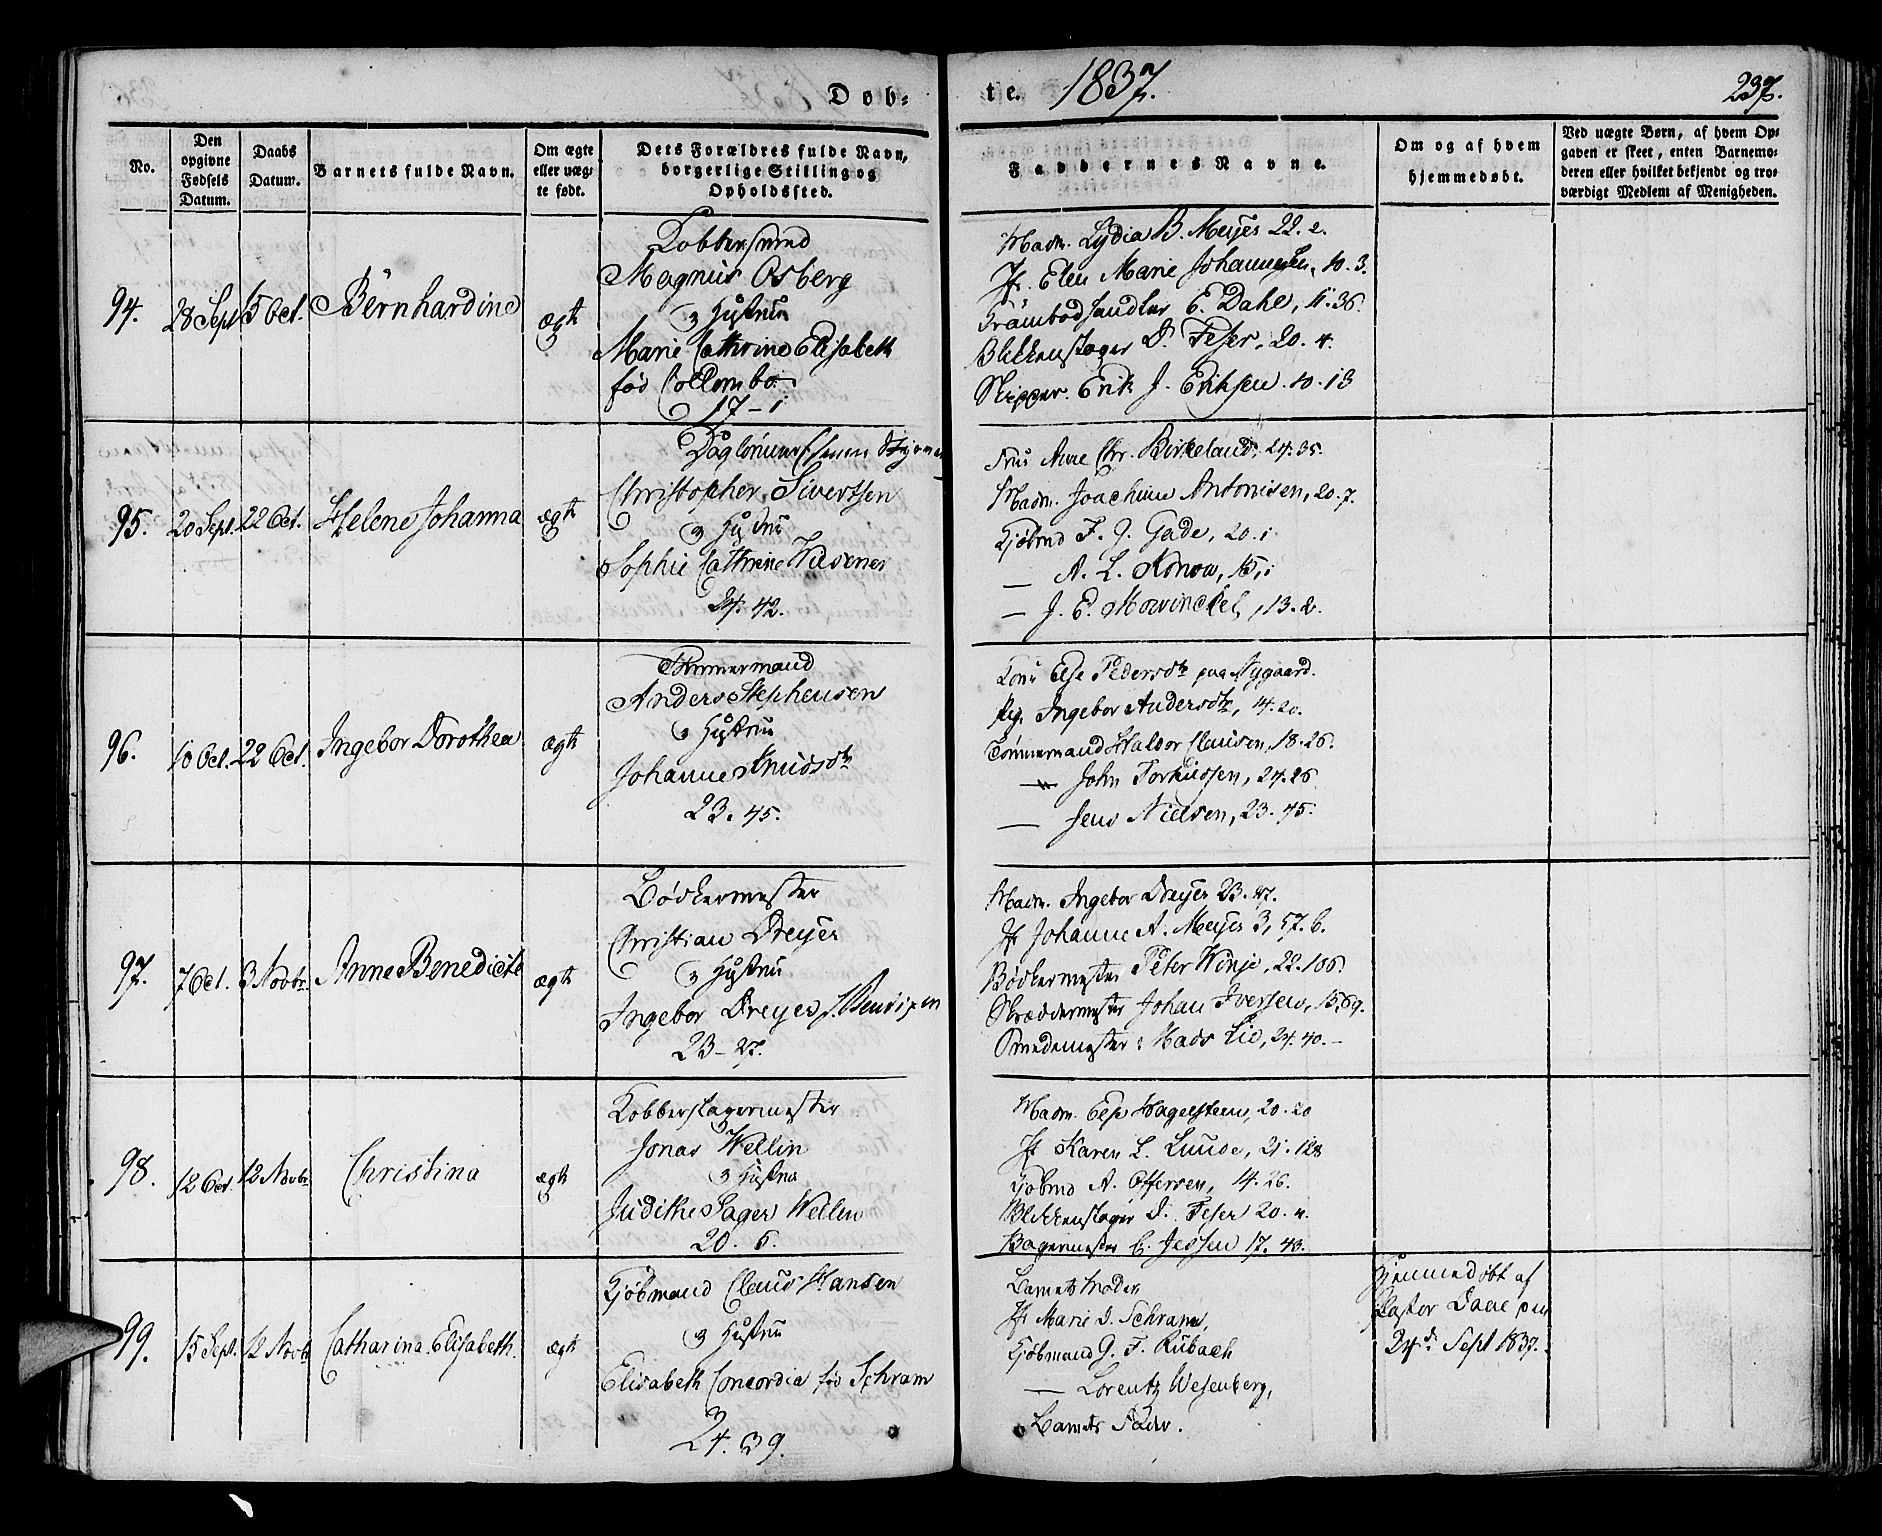 Døb-
te. 1837.
237.
No.
Den opgivne Fødsels Datum.
Daabs Datum.
Barnets fulde Navn.
Om ægte eller uæg-te født.
Dets Forældres fulde Navn, borgerlige Stilling og Opholdssted.
Faddernes Navne.
Om og af hvem hjemmedøbt.
Ved uægte Børn, af hvem Op-
gaven er skeet, enten Barnemo-
deren eller hvilket bekjendt og tro-
værdigt Medlem af Menigheden.
94. 28 Sept 15 Oct. Bernhardine ægte
Kobbersmed
Magnus Osberg
og Hustru
Marie Cathrine Elisabeth
fød Collombo
17-1
Madm. Lydia B. Meyer 22.2.
Jf. Elen Marie Johannesen, 10.3.
E. Dahl, 11.36.
Blikkenslager D. Feser, 20.4.
Skipper Erik J. Eriksen. 10.13
95. 20 Sept. 22 Oct. Helene Johanna ægte
Christopher Sivertsen
og Hustru
Sophie Cathrine
24.42.
Anne Chr. Birkeland, 24.35.
Madm. Joachime Antonisen, 20.7.
Kjøbmd F. J. Gade, 20.1
— A. L. Konow, 15,1
— J. E. Mowinckel, 13.2.
96. 10 Oct. 22 Oct. Ingebor Dorothea ægte
Tømmermand
Anders Stephensen
og Hustru
Johanne Knudsdtr
23.45.
Kone Else Pedersdtr paa Nygaard.
Pig. Ingebor Andersdtr, 14.20.
Tømmermand Haldor Clausen, 18.26.
— John Torkilssen, 24.26
— Jens Nielsen, 23.45.
97. 7 Oct. 3 Novbr. Anne Benedicte ægte
Bødkermester
Christian Dreyer
og Hustru
Ingebor Dreyer f. Bendixen
23-27.
Madm. Ingebor Dreyer 23.47.
Jf Johanne A. Meyer 3, 57.b.
Bødkermester Peter Winje, 22.106.
Skræddermester Johan Iversen, 15.69.
Smedemester Mads Lie, 24.40.
98. 12 Oct. 12 Novbr. Christina ægte
Kobberslagermester
Jonas Wellin
og Hustru
Judithe Sager Wellin
20.6.
Madm. Else Hagelsteen, 20.20
Jf Karen L. Lunde, 21.128
Kjøbmd A. Offersen, 14.26.
Blikkenslager D. Feser 20.4.
Bagermester C. Jessen 17.43.
99. 15 Sept. 12 Novbr Catharina Elisabeth. ægte
Kjøbmand Claus Hansen
og Hustru
Elisabeth Concordia fød Schram
24.39.
Barnets Moder
Jf Marie D. Schram,
Kjøbmand J. F. Rubach
— Lorentz Wesenberg,
Barnets Fader.
Hjemmedøbt af
Pastor Daae den
24d. Sept 1837.